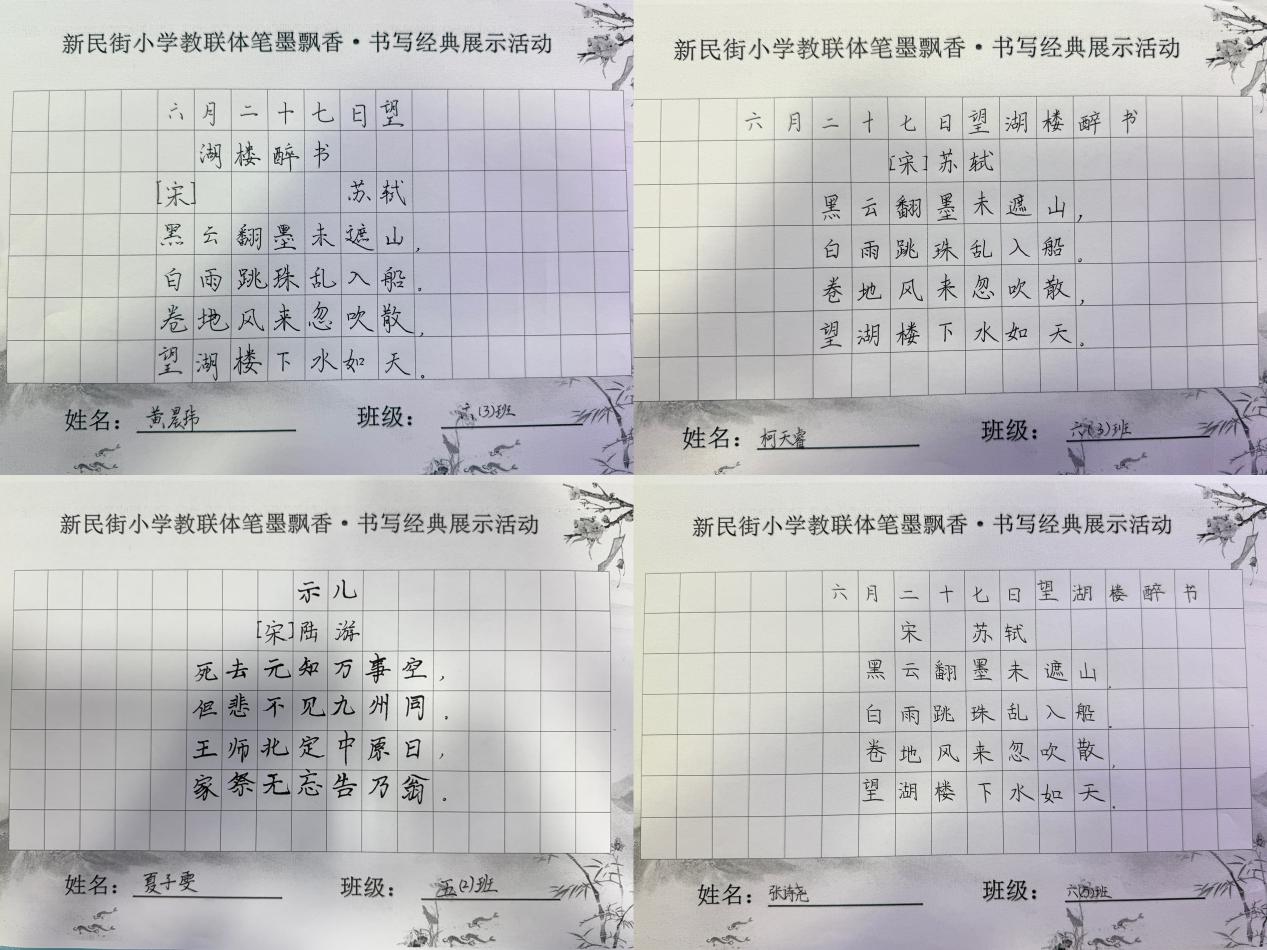 新民街小学教联体笔墨飘香·书写经典展示活动
六月二十七日望
湖楼醉书
[宋] 苏轼
黑云翻墨未遮山，
白雨跳珠乱入船。
卷地风来忽吹散，
望湖楼下水如天。
姓名：黄晨玮 班级：六(3)班
新民街小学教联体笔墨飘香·书写经典展示活动
六月二十七日望湖楼醉书
[宋]苏轼
黑云翻墨未遮山，
白雨跳珠乱入船。
卷地风来忽吹散，
望湖楼下水如天。
姓名：柯天睿 班级：六(3)班
新民街小学教联体笔墨飘香·书写经典展示活动
示儿
[宋]陆游
死去元知万事空，
但悲不见九州同。
王师北定中原日，
家祭无忘告乃翁。
姓名：夏子雯 班级：五(2)班
新民街小学教联体笔墨飘香·书写经典展示活动
六月二十七日望湖楼醉书
宋 苏轼
黑云翻墨未遮山，
白雨跳珠乱入船。
卷地风来忽吹散，
望湖楼下水如天。
姓名：张诗尧 班级：六(3)班